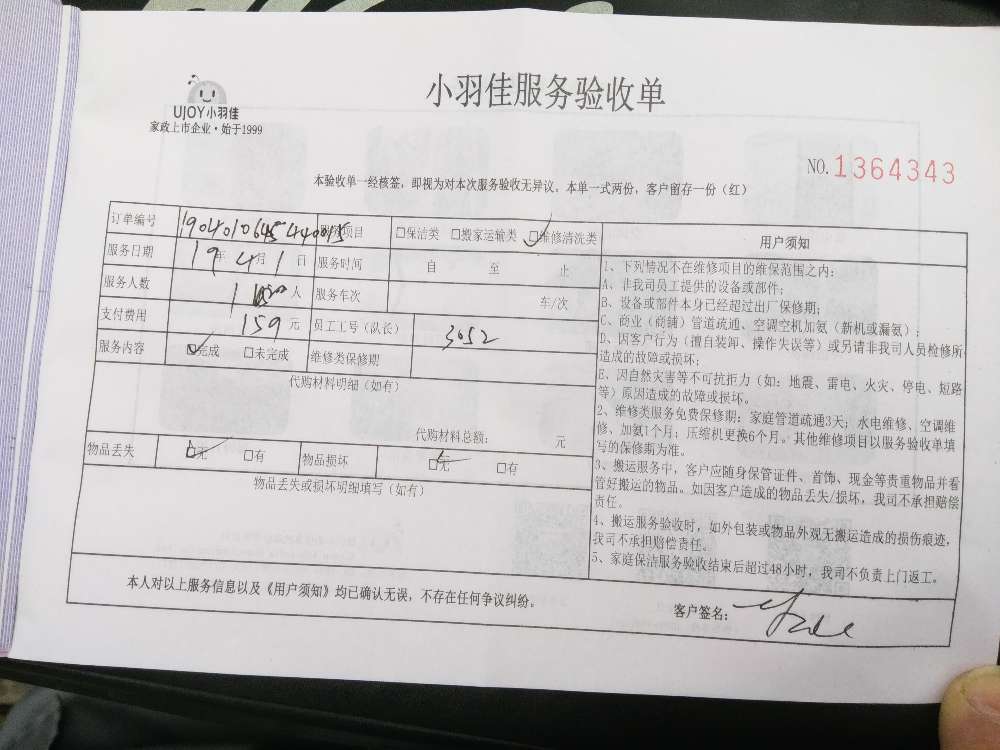 UJOY小羽佳
家政上市企业·始于1999
小羽佳服务验收单
NO.1364343
本验收单一经核签，即视为对本次服务验收无异议，本单一式两份，客户留存一份（红）
订单编号 项目 □保洁类 □搬家运输类 □维修清洗类
服务日期 19年4月1日 服务时间 自 至 止
服务人数 1 人 服务车次 车/次
支付费用 159元 员工工号（队长） 3052
服务内容 □完成 □未完成 维修类保修期
代购材料明细（如有）
代购材料总额： 元
物品丢失 □无 □有 物品损坏 □无 □有
物品丢失或损坏明细填写（如有）
用户须知
1、下列情况不在维修项目的维保范围之内：
A、非我司员工提供的设备或部件；
B、设备或部件本身已经超过出厂保修期；
C、商业（商鋪）管道疏通、空调空机加氨（新机或漏氨）；
D、因客户行为（擅自装卸、操作失误等）或另请非我司人员检修所
造成的故障或损坏；
E、因自然灾害等不可抗拒力（如：地震、雷电、火灾、停电、短路
等）原因造成的故障或损坏。
2、维修类服务免费保修期：家庭管道疏通3天；水电维修、空调维
修、加氨1个月；压缩机更换6个月。其他维修项目以服务验收单填
写的保修期为准。
3、搬运服务中，客户应随身保管证件、首饰、现金等贵重物品并看
管好搬运的物品。如因客户造成的物品丢失/损坏，我司不承担赔偿
责任。
4、搬运服务验收时，如外包装或物品外观无搬运造成的损伤痕迹，
我司不承担赔偿责任。
5、家庭保洁服务验收结束后超过48小时，我司不负责上门返工。
本人对以上服务信息以及《用户须知》均已确认无误，不存在任何争议纠纷。
客户签名：